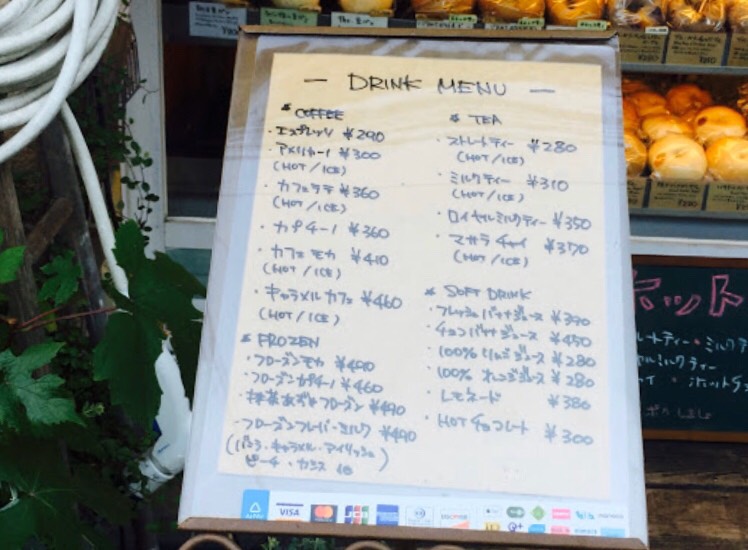 — DRINK MENU —
* COFFEE
・エスプレッソ ¥290
・アメリカーノ ¥300
(HOT / ICE)
・カフェラテ ¥360
(HOT / ICE)
・カプチーノ ¥360
・カフェモカ ¥410
(HOT / ICE)
・キャラメルカフェ ¥460
(HOT / ICE)
* FROZEN
・フローズンモカ ¥490
・フローズンカプチーノ ¥460
・抹茶あずきフローズン ¥490
・フローズンフレーバーミルク ¥490
(バニラ・キャラメル・アイリッシュ
ピーチ・カシス 他)
* TEA
・ストレートティー ¥280
(HOT / ICE)
・ミルクティー ¥310
(HOT / ICE)
・ロイヤルミルクティー ¥350
・マサラチャイ ¥370
(HOT / ICE)
* SOFT DRINK
・フレッシュバナナジュース ¥390
・チョコバナナジュース ¥450
・100% りんごジュース ¥280
・100% オレンジジュース ¥280
・レモネード ¥380
・HOTチョコレート ¥300
VISA
JCB
ホット
ミルク
ミルクティー